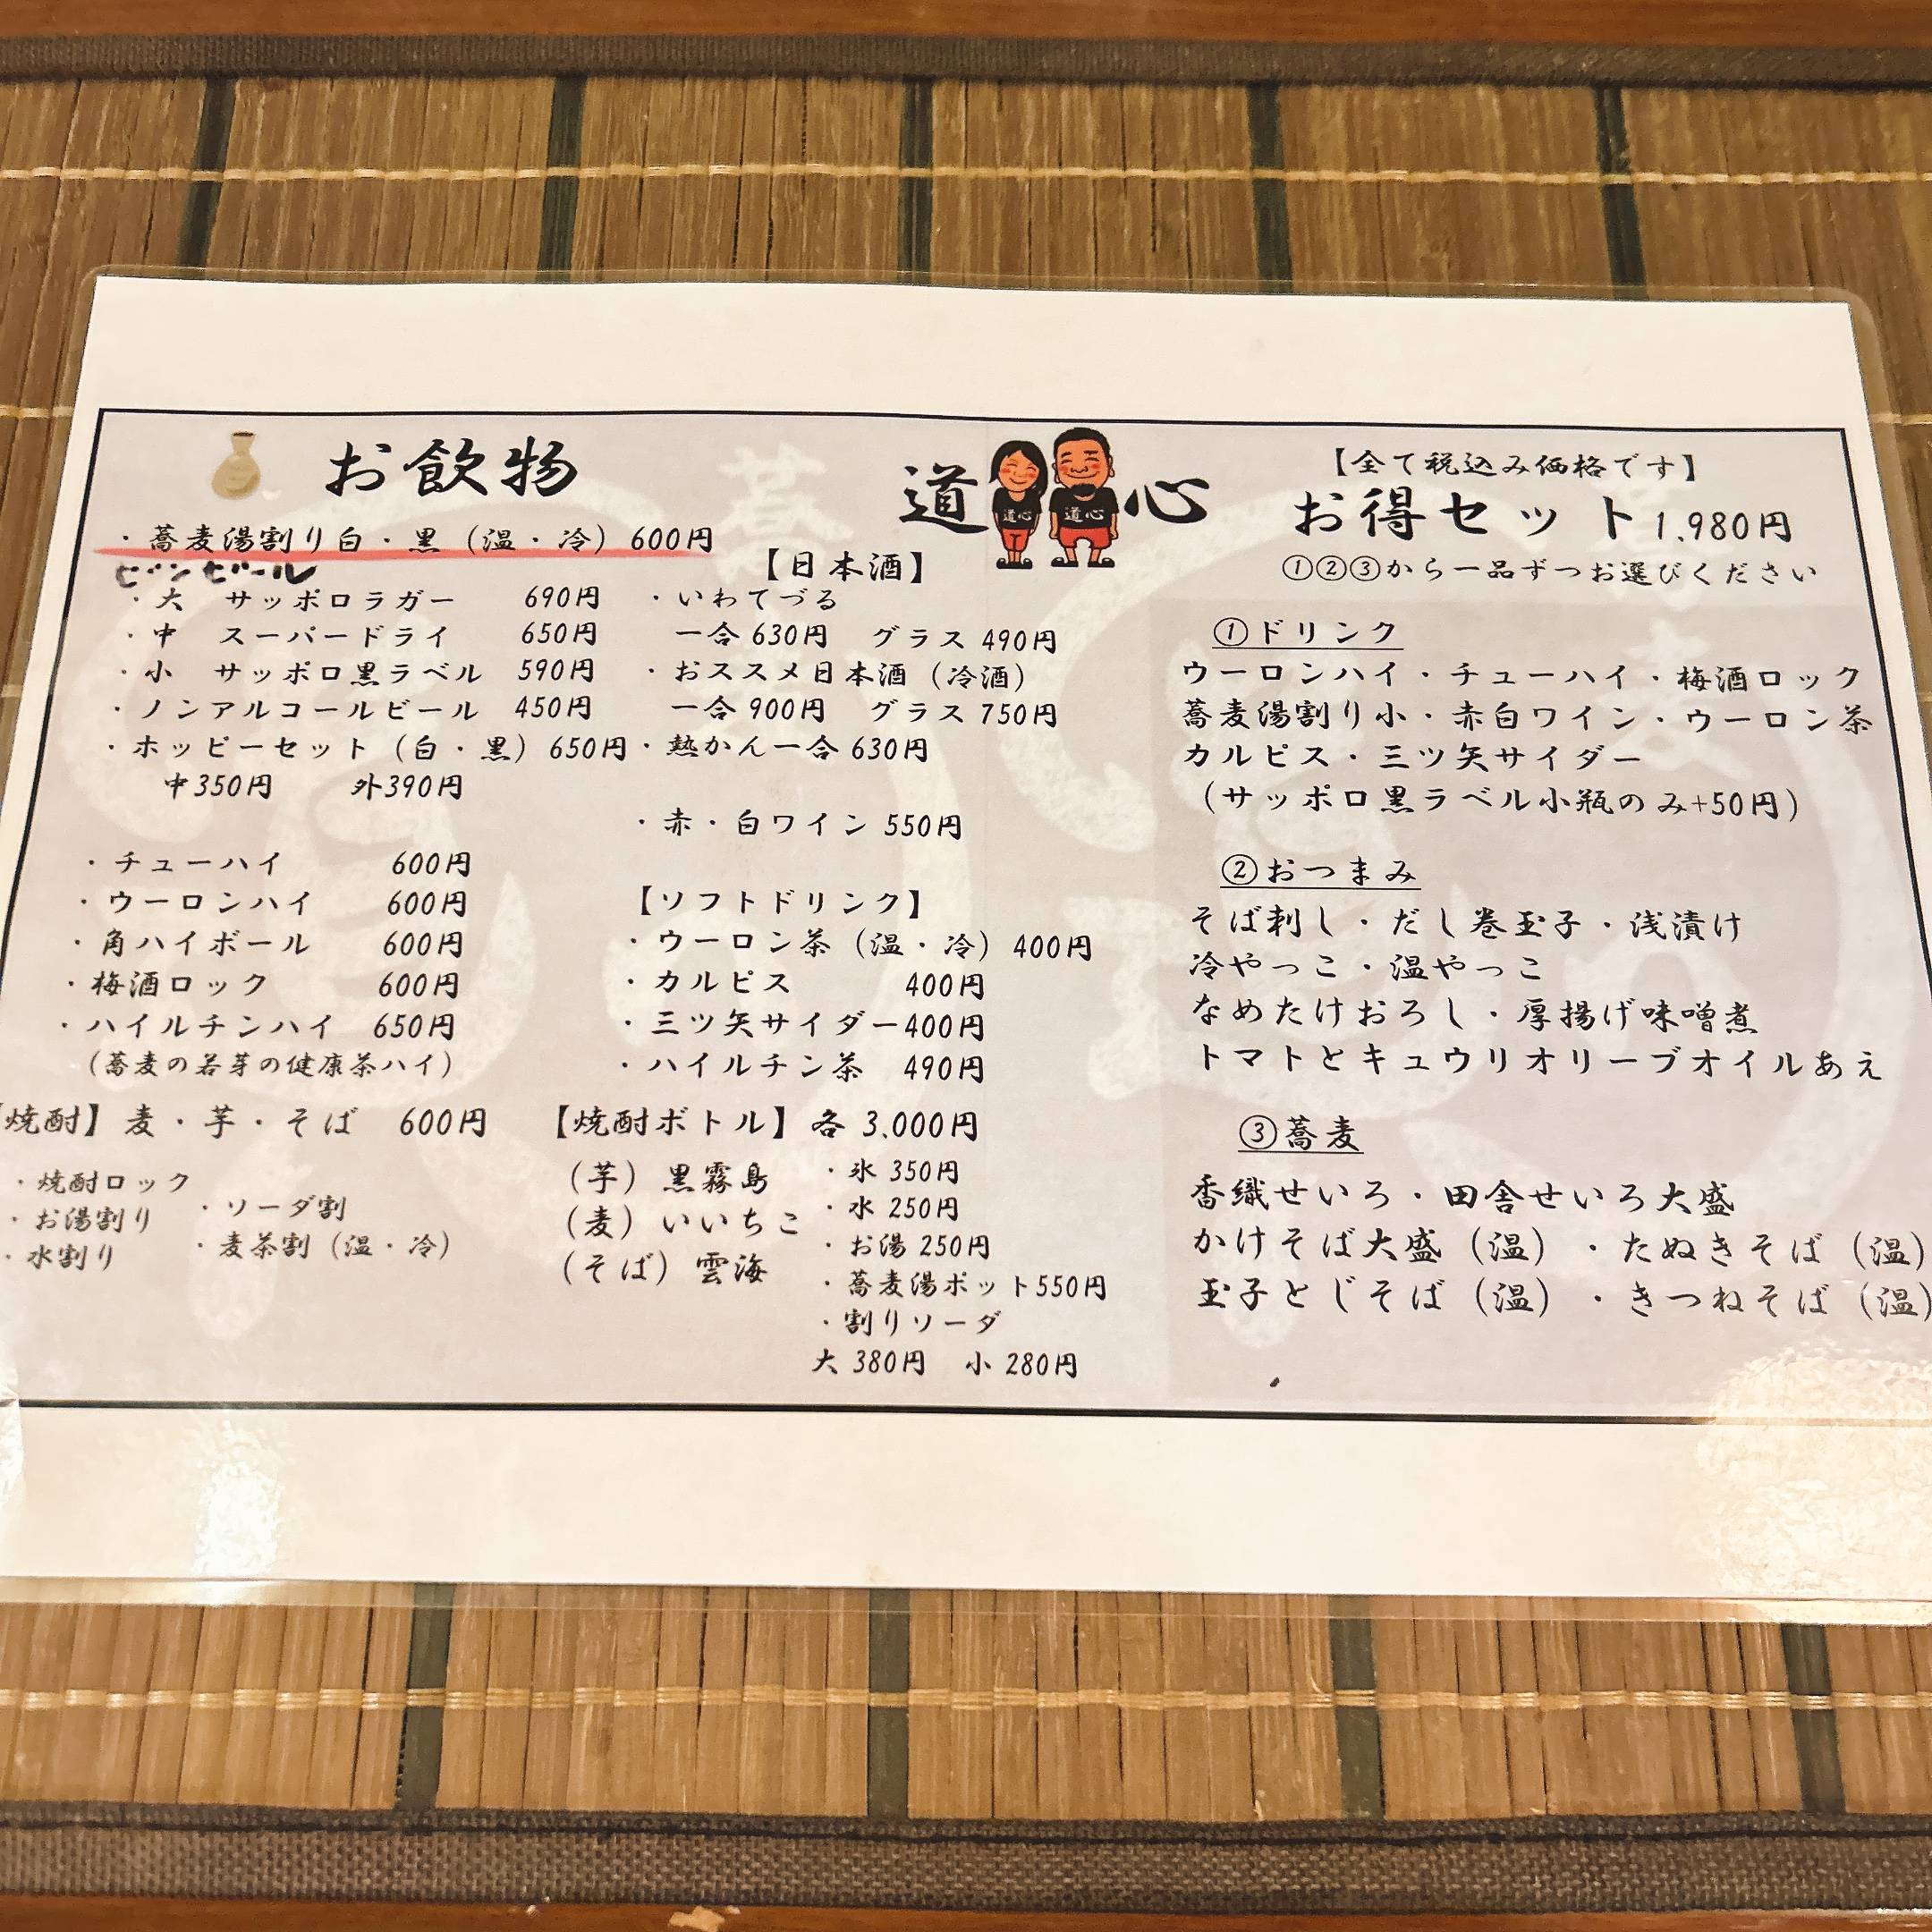 お飲物
・蕎麦湯割り白・黒（温・冷）600円
ビンビール
・大 サッポロラガー 690円
・中 スーパードライ 650円
・小 サッポロ黒ラベル 590円
・ノンアルコールビール 450円
・ホッピーセット（白・黒）650円
中350円 外390円
・チューハイ 600円
・ウーロンハイ 600円
・角ハイボール 600円
・梅酒ロック 600円
・ハイルチンハイ 650円
（蕎麦の若芽の健康茶ハイ）
【焼酎】麦・芋・そば 600円
・焼酎ロック
・お湯割り
・水割り
・ソーダ割
・麦茶割（温・冷）
道心
道心
道心
【日本酒】
・いわてづる
一合 630円 グラス 490円
・おススメ日本酒（冷酒）
一合 900円 グラス 750円
・熱かん一合 630円
・赤・白ワイン 550円
【ソフトドリンク】
・ウーロン茶（温・冷）400円
・カルピス 400円
・三ツ矢サイダー400円
・ハイルチン茶 490円
【焼酎ボトル】各 3.000円
（芋）黒霧島
（麦）いいちこ
（そば）雲海
・氷 350円
・水 250円
・お湯 250円
・蕎麦湯ポット550円
・割りソーダ
大 380円 小 280円
【全て税込み価格です】
お得セット1.980円
①②③から一品ずつお選びください
①ドリンク
ウーロンハイ・チューハイ・梅酒ロック
蕎麦湯割り小・赤白ワイン・ウーロン茶
カルピス・三ツ矢サイダー
（サッポロ黒ラベル小瓶のみ+50円）
②おつまみ
そば刺し・だし巻玉子・浅漬け
冷やっこ・温やっこ
なめたけおろし・厚揚げ味噌煮
トマトとキュウリオリーブオイルあえ
③蕎麦
香織せいろ・田舎せいろ大盛
かけそば大盛（温）・たぬきそば（温）
玉子とじそば（温）・きつねそば（温）